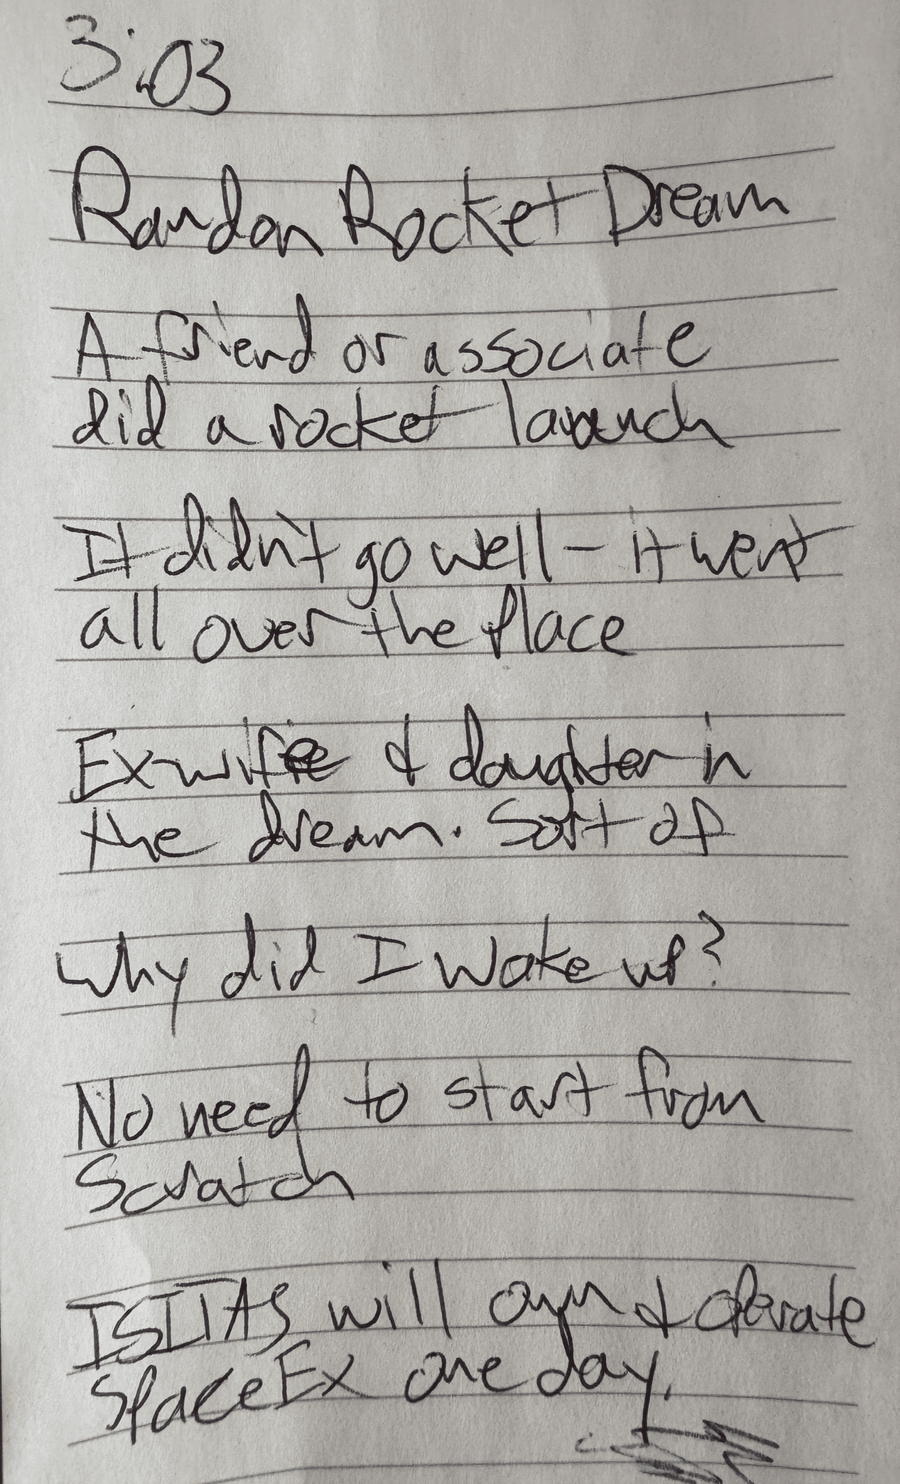 3:03
Randon Rocket Dream
A friend or associate
did a rocket launch
It didn't go well - it went
all over the place
Ex wife & daughter in
the dream. Sort of
Why did I wake up?
No need to start from
Scratch
ISITAS will own & operate
SpaceEx one day.